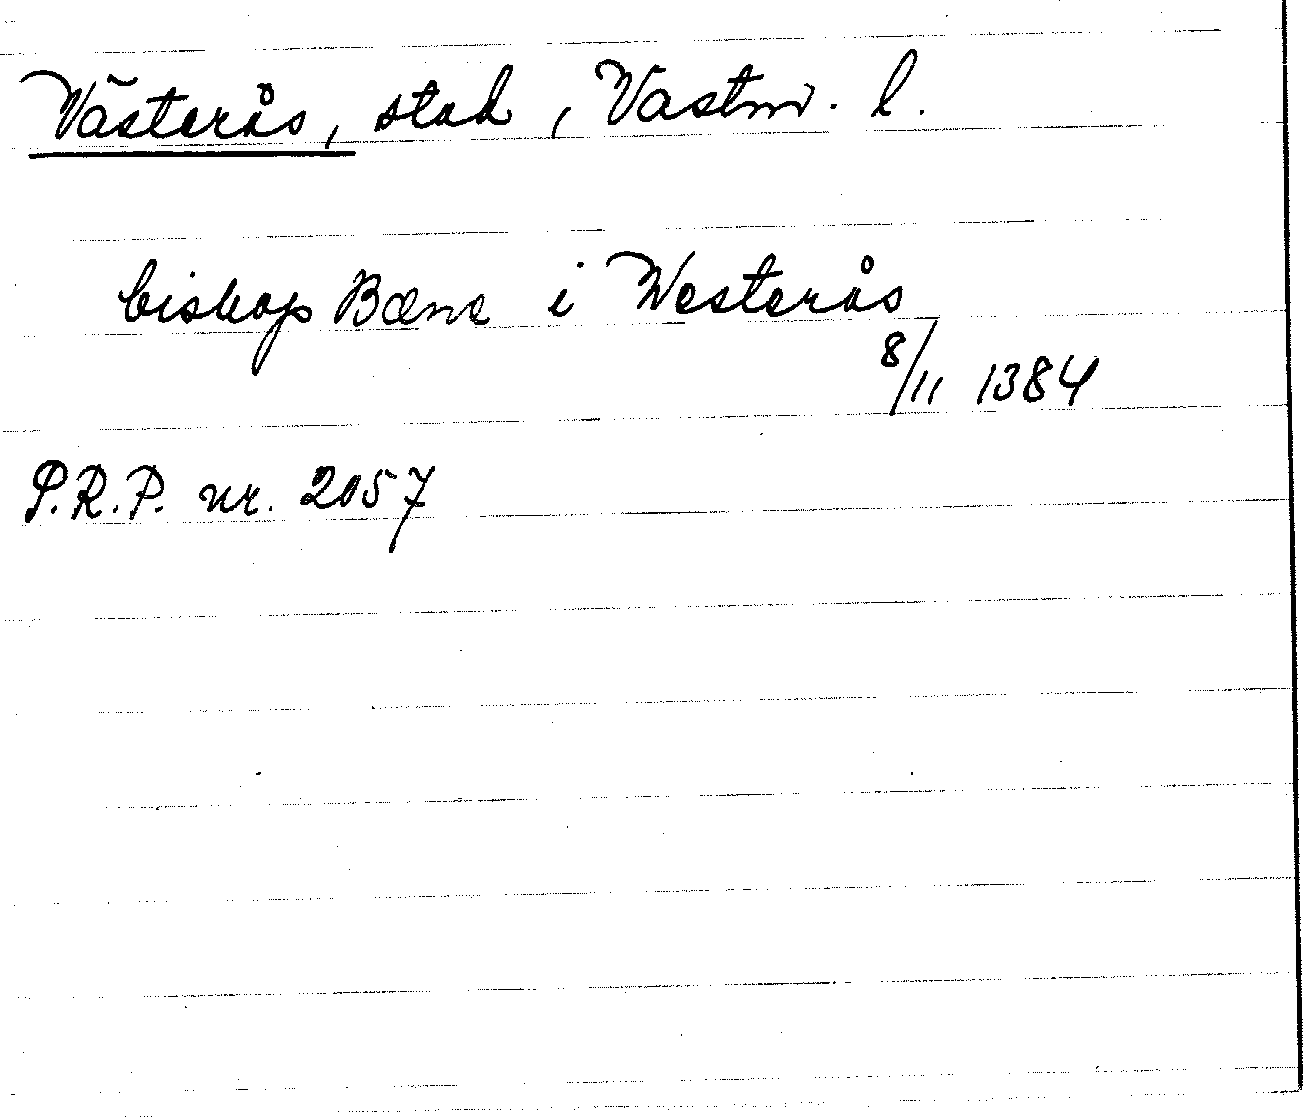 Västerås, stad, Västm. l.
biskop Bæne i Westerås
8/11 1384
P.R.P. nr. 2057